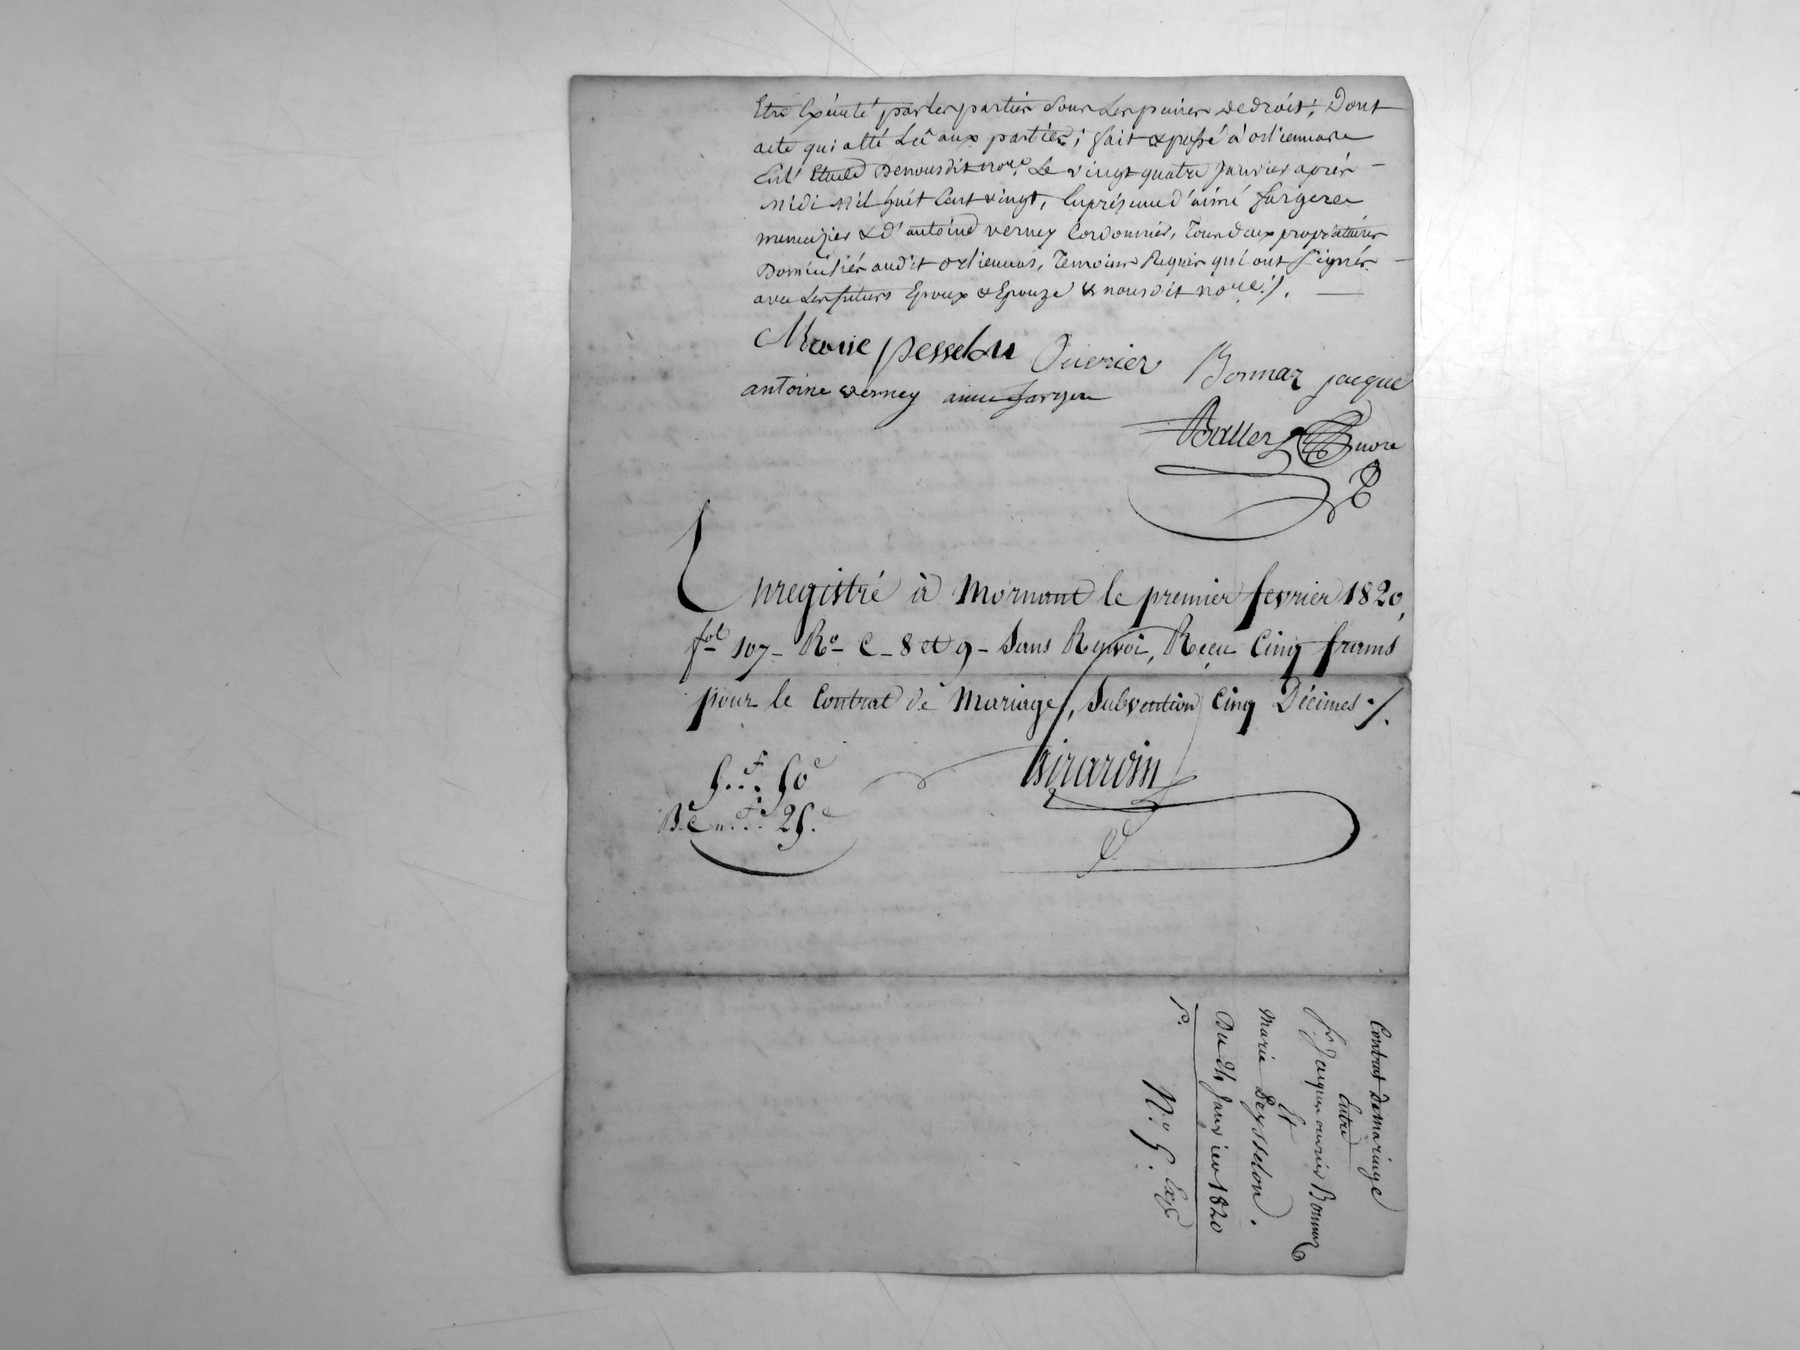 Etre Exécuté par les parties Sous Les peines de droit; Dont
acte qui a été Lû aux parties; fait & passé à orliennas
En l'Etude De nous dit not.re Le vingt quatre Janvier après
Midi Mil huit Cent vingt, En présence d'aimé fargere
menuizier & d'antoine verney Cordonnier, Tous deux propriétaires
Domiciliés audit orliennas, Temoins Requis qui ont Signés
avec Les futurs Epoux & Epouze & nous dit not.re ./.
Marie pesselon Ouvrier Bonnaz jacque
antoine verney aimé fargere
Enregistré à Mornant le premier fevrier 1820,
fol. 107 - R.o C - 8 et 9 - Sans Renvoi, Reçu Cinq francs
pour le Contrat de Mariage, Subvention Cinq Décimes ./.
5..f 50c
25.c
Girardin
Contrat De Mariage
Entre
Sr. Jacques ouvrier Bonnaz
Et
Marie Peysselon.
Du 24 Janvier 1820
P.
N.o 5. Exp